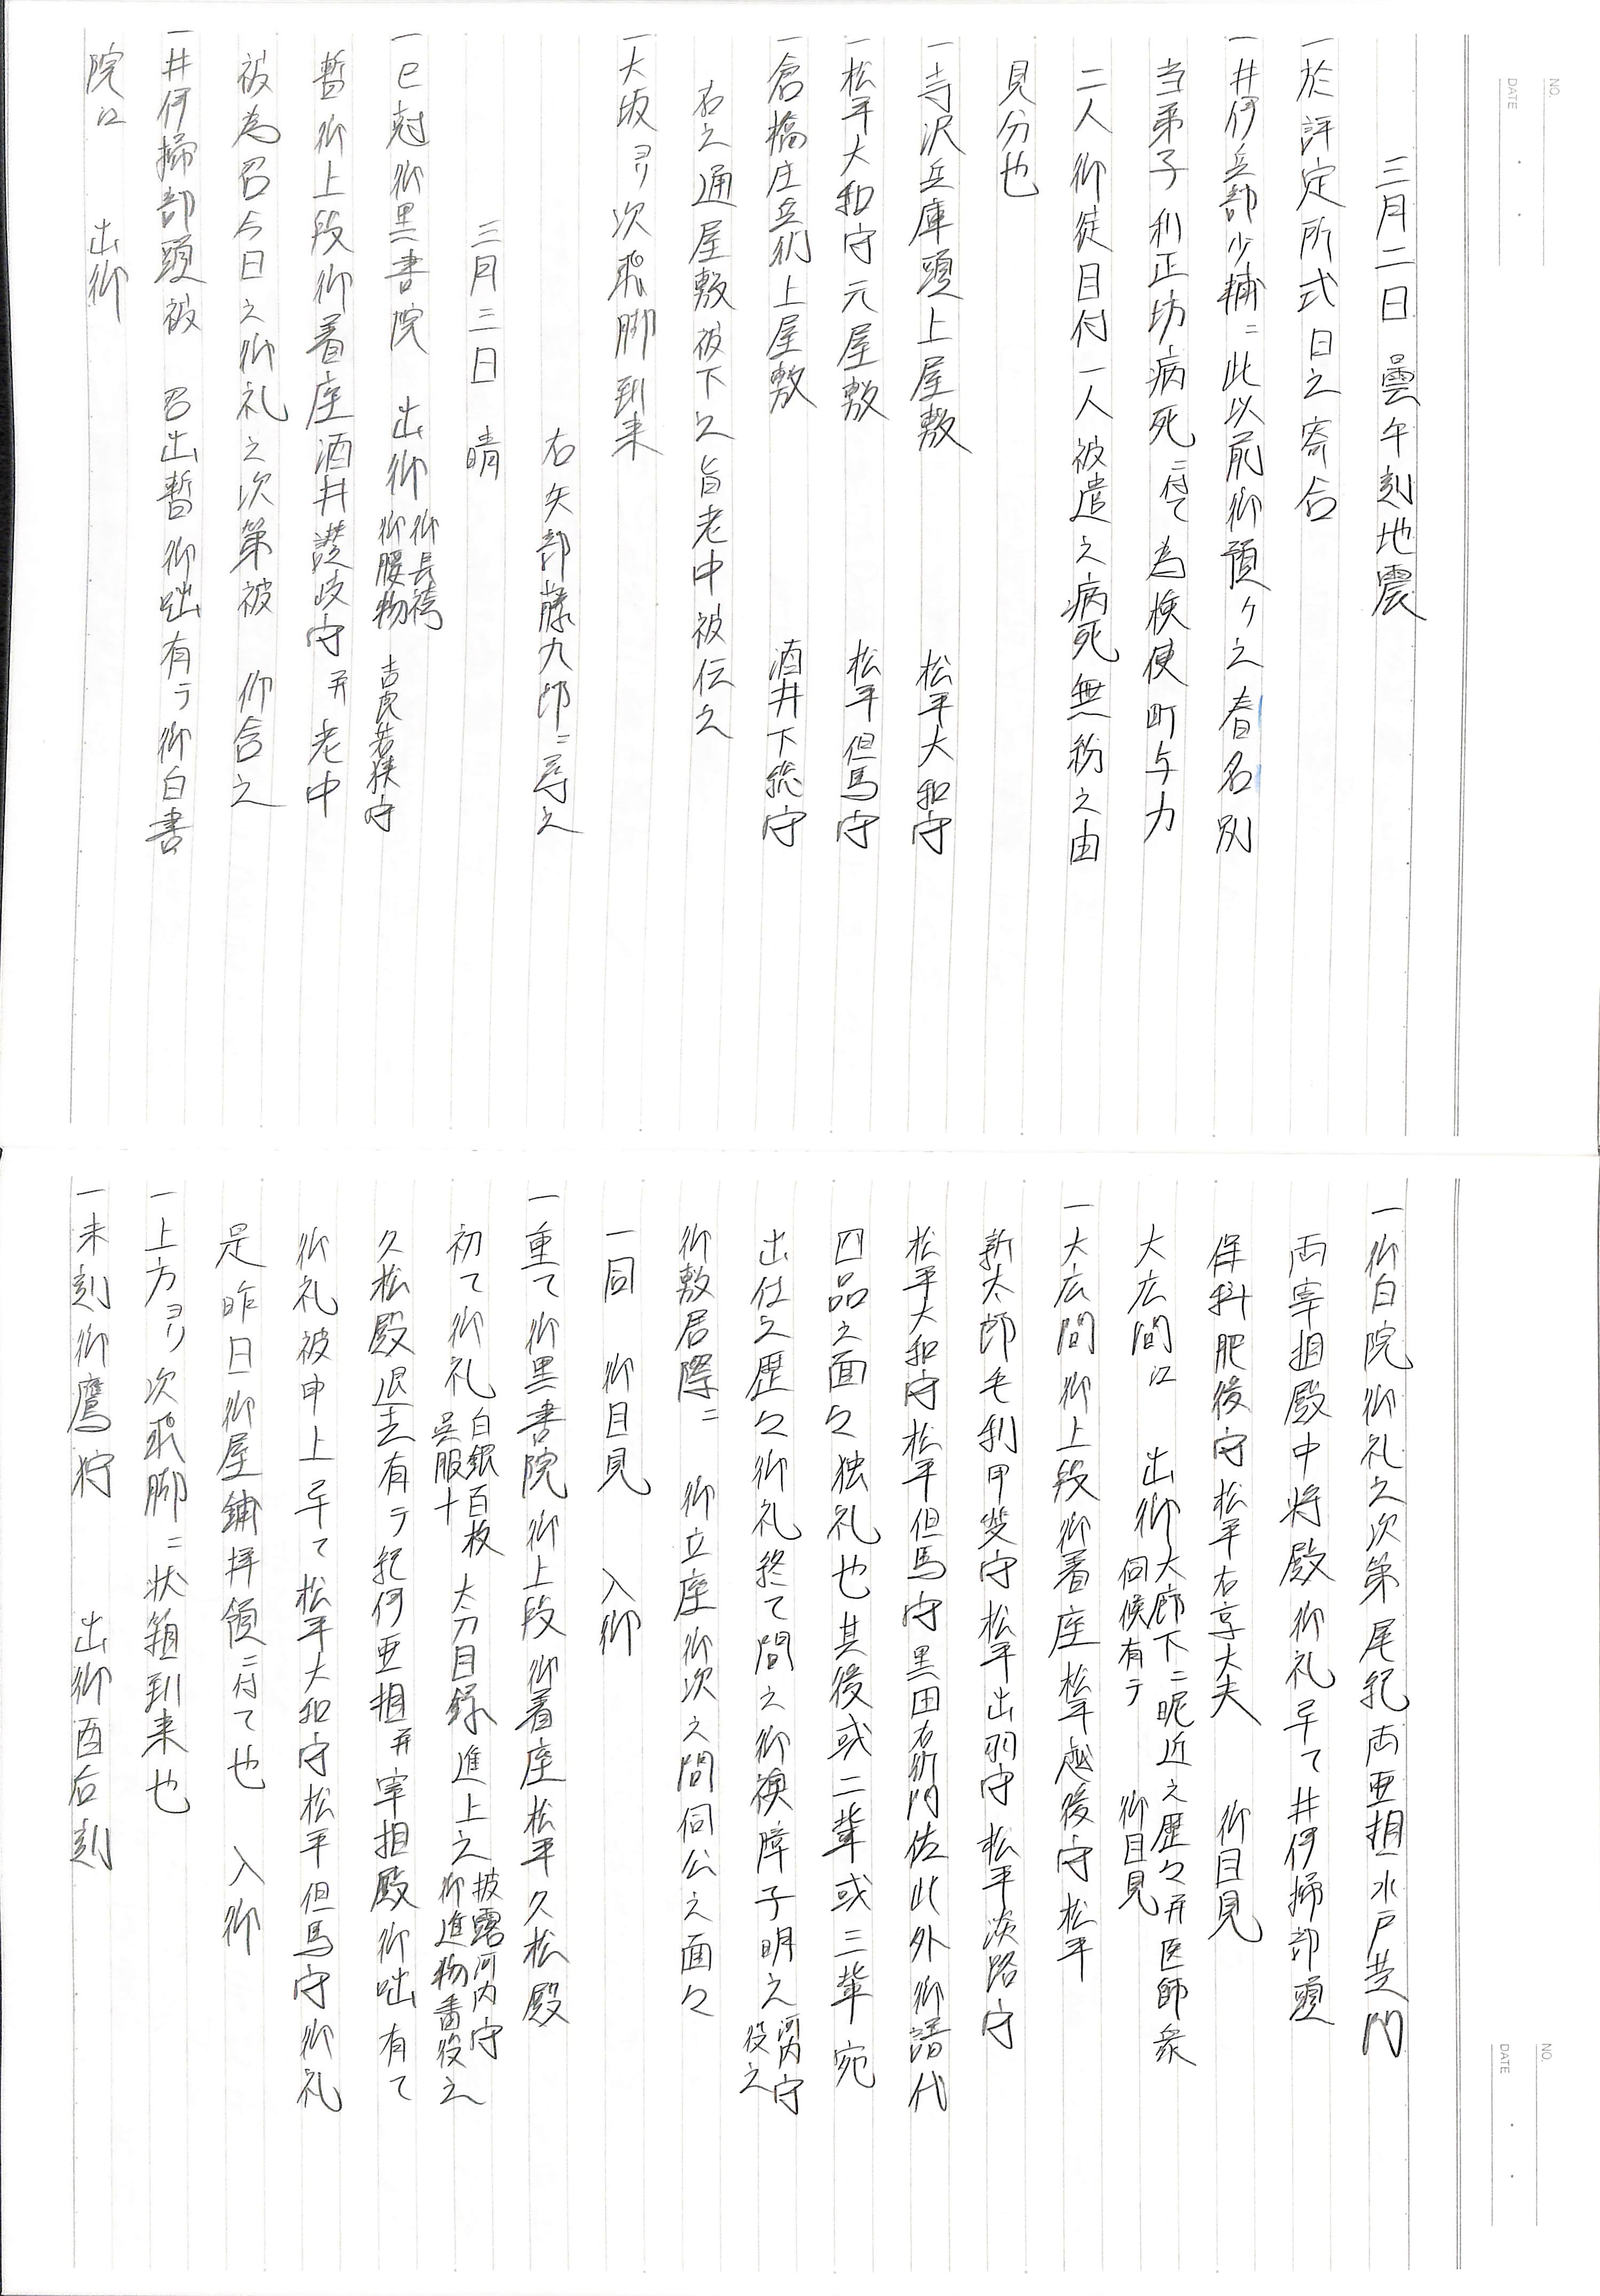 三月二日 曇午刻地震
一於評定所式日之寄合
一井伊兵部少輔ニ此以前御預ケ之春名別
当弟子利正坊病死ニ付て為検使町与力
二人御徒目付一人被遣之病死無紛之由
見分也
一寺沢兵庫頭上屋敷 松平大和守
一松平大和守元屋敷 松平但馬守
一倉橋庄兵衛上屋敷 酒井下総守
右之通屋敷被下之旨老中被伝之
一大坂ヨリ次飛脚到来
右矢部藤九郎ニ尋之
三月三日 晴
一巳刻御黒書院 出御 御長袴 御腰物 吉良若狭守
暫御上段御着座酒井讃岐守并老中
被為召今日之御礼之次第被 仰含之
一井伊掃部頭被 召出暫御咄有テ御白書
院江 出御
NO.
DATE
一御白院御礼之次第尾紀両亜相水戸黄門
両宰相殿中将殿御礼畢て井伊掃部頭
保科肥後守松平右京大夫 御目見
大広間江 出御 大廊下ニ昵近之歴々并医師衆 伺候有テ 御目見
一大広間御上段御着座松平越後守松平
新太郎毛利甲斐守松平出羽守松平淡路守
松平大和守松平但馬守黒田右衛門佐此外御譜代
四品之面々独礼也其後或二輩或三輩宛
出仕之歴々御礼終て間之御襖障子明之 河内守 役之
御敷居際ニ 御立座御次之間伺公之面々
一同 御目見 入御
一重て御黒書院御上段御着座松平久松殿
初て御礼 白銀百枚 呉服十 太刀目録進上之 披露河内守 御進物番役之
久松殿退去有テ紀伊亜相并宰相殿御咄有て
御礼被申上畢て松平大和守松平但馬守御礼
是昨日御屋鋪拝領ニ付て也 入御
一上方ヨリ次飛脚ニ状箱到来也
一未刻御鷹狩 出御酉后刻
NO.
DATE